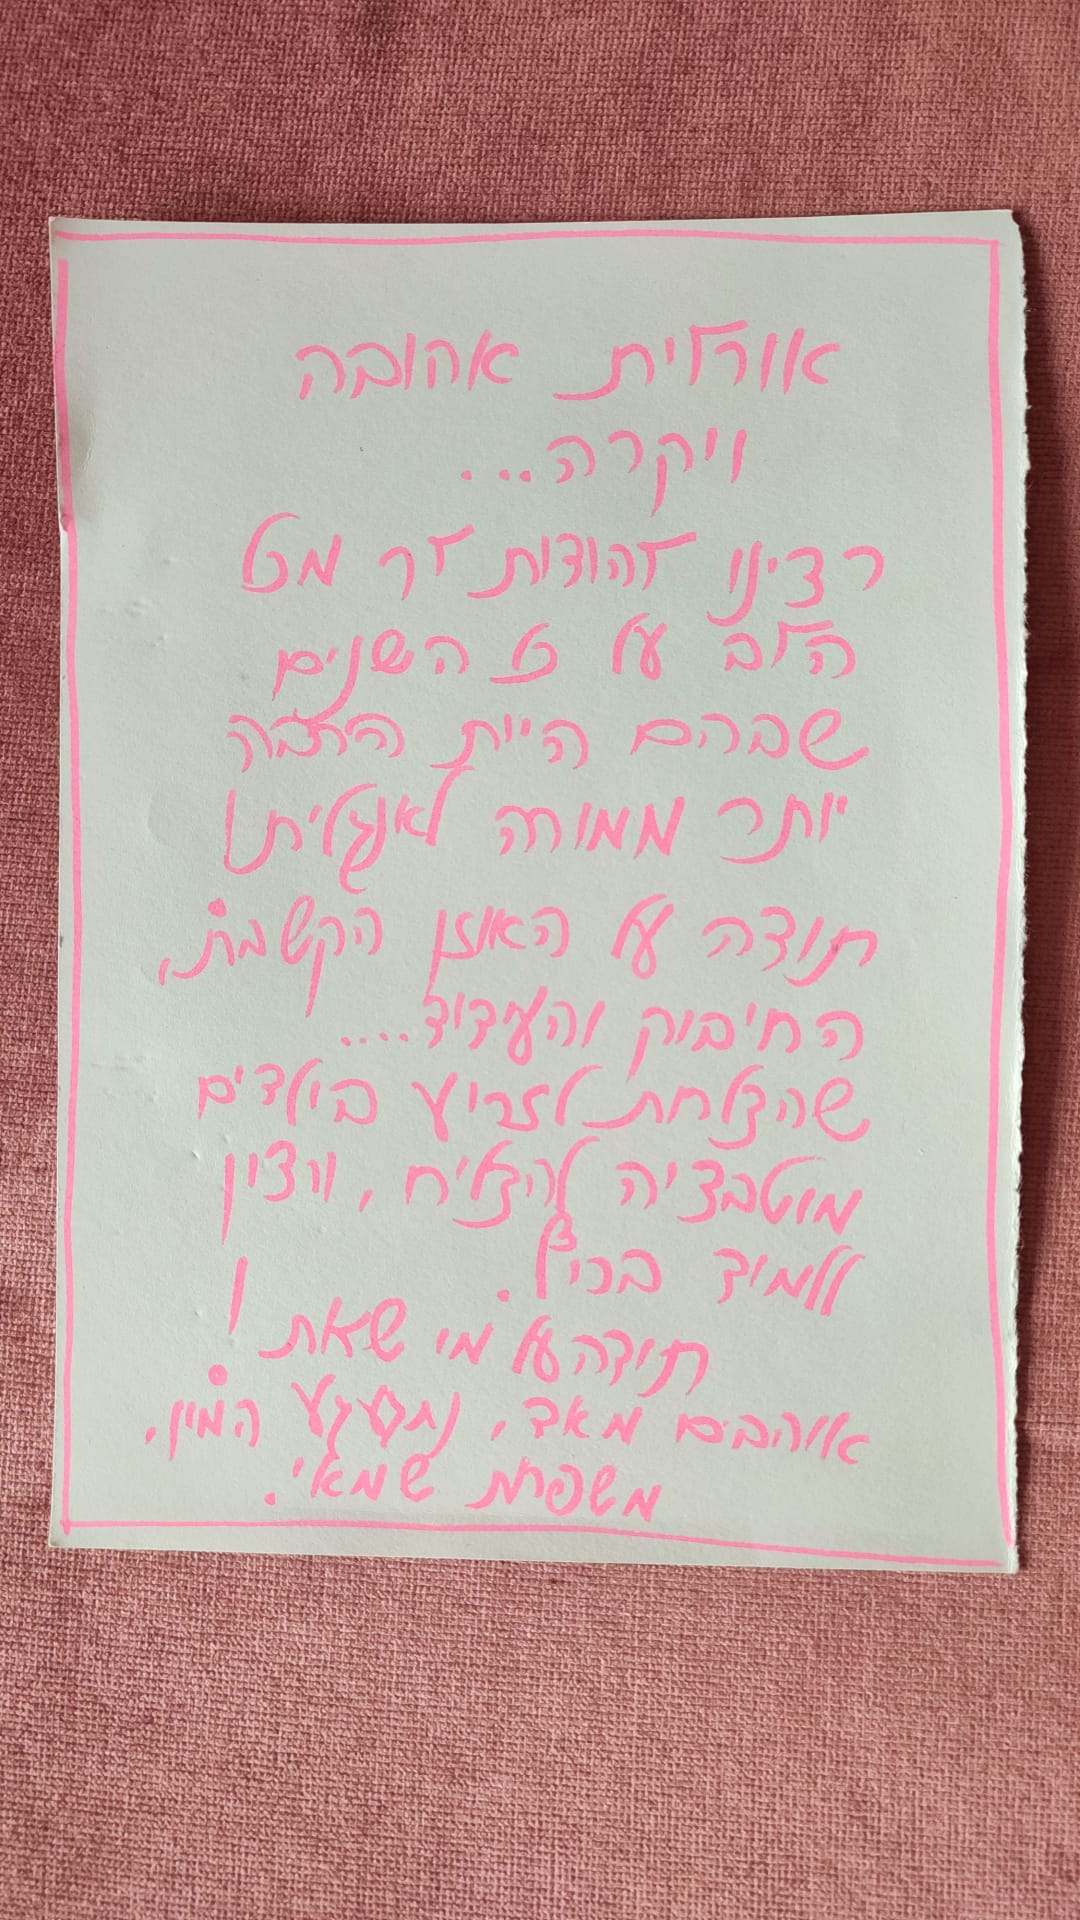 אורלית אהובה
ויקרה...
רצינו להודות לך מכל
הלב על כל השנים
שבהם היית הרבה
יותר ממורה לאנגלית!
תודה על האוזן הקשבת,
החיבוק והעידוד....
שהצלחת לזריע בילדים
מוטבציה להצליח, ורצון
ללמוד בכיף.
תודה על מי שאת!
אוהבים מאד, נתגעגע המון,
משפחת שמאי.